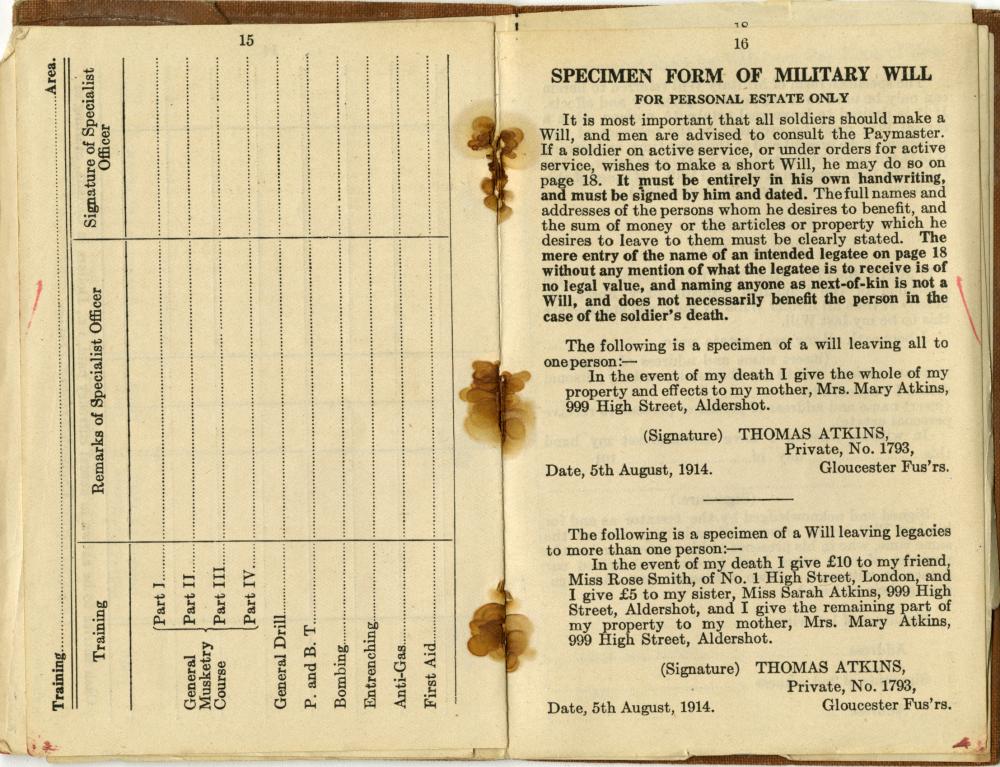 15
Training........................Area.
Training
Remarks of Specialist Officer
Signature of Specialist
Officer
General
Musketry
Course
Part I
Part II
Part III
Part IV
General Drill
P. and B. T.
Bombing
Entrenching
Anti-Gas
First Aid
18
16
SPECIMEN FORM OF MILITARY WILL
FOR PERSONAL ESTATE ONLY
It is most important that all soldiers should make a
Will, and men are advised to consult the Paymaster.
If a soldier on active service, or under orders for active
service, wishes to make a short Will, he may do so on
page 18. It must be entirely in his own handwriting,
and must be signed by him and dated. The full names and
addresses of the persons whom he desires to benefit, and
the sum of money or the articles or property which he
desires to leave to them must be clearly stated. The
mere entry of the name of an intended legatee on page 18
without any mention of what the legatee is to receive is of
no legal value, and naming anyone as next-of-kin is not a
Will, and does not necessarily benefit the person in the
case of the soldier's death.
The following is a specimen of a will leaving all to
one person:—
In the event of my death I give the whole of my
property and effects to my mother, Mrs. Mary Atkins,
999 High Street, Aldershot.
(Signature) THOMAS ATKINS,
Private, No. 1793,
Date, 5th August, 1914. Gloucester Fus'rs.
The following is a specimen of a Will leaving legacies
to more than one person:—
In the event of my death I give £10 to my friend,
Miss Rose Smith, of No. 1 High Street, London, and
I give £5 to my sister, Miss Sarah Atkins, 999 High
Street, Aldershot, and I give the remaining part of
my property to my mother, Mrs. Mary Atkins,
999 High Street, Aldershot.
(Signature) THOMAS ATKINS,
Private, No. 1793,
Date, 5th August, 1914. Gloucester Fus'rs.